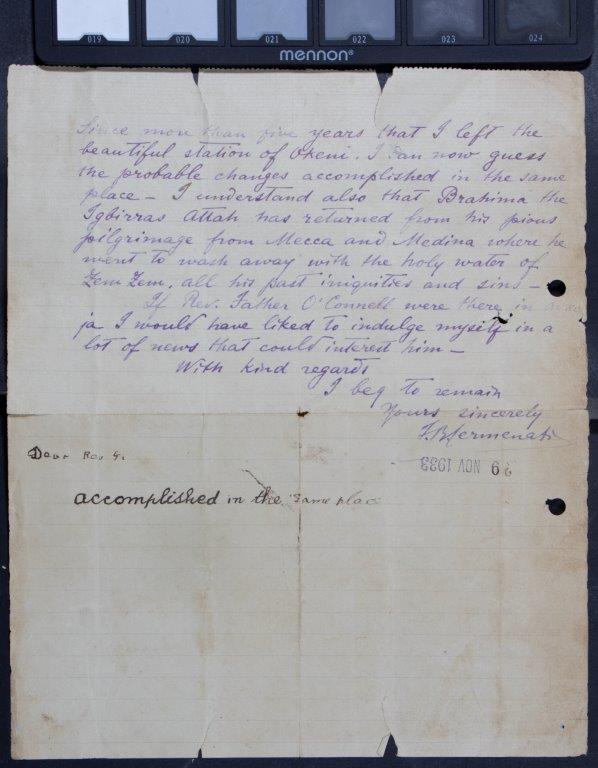 019 020 021 022 023 024
mennon®
Since more than five years that I left the
beautiful station of Okeni. I can now guess
the probable changes accomplished in the same
place - I understand also that Brahima the
Igbirras Attah has returned from his pious
pilgrimage from Mecca and Medina where he
went to wash away with the holy water of
Zem Zem, all his past iniquities and sins -
If Rev. Father O'Connell were there in
ja I would have liked to indulge myself in a
lot of news that could interest him -
With kind regards
I beg to remain
Yours sincerely
Dear Rev
29 NOV 1933
accomplished in the same place